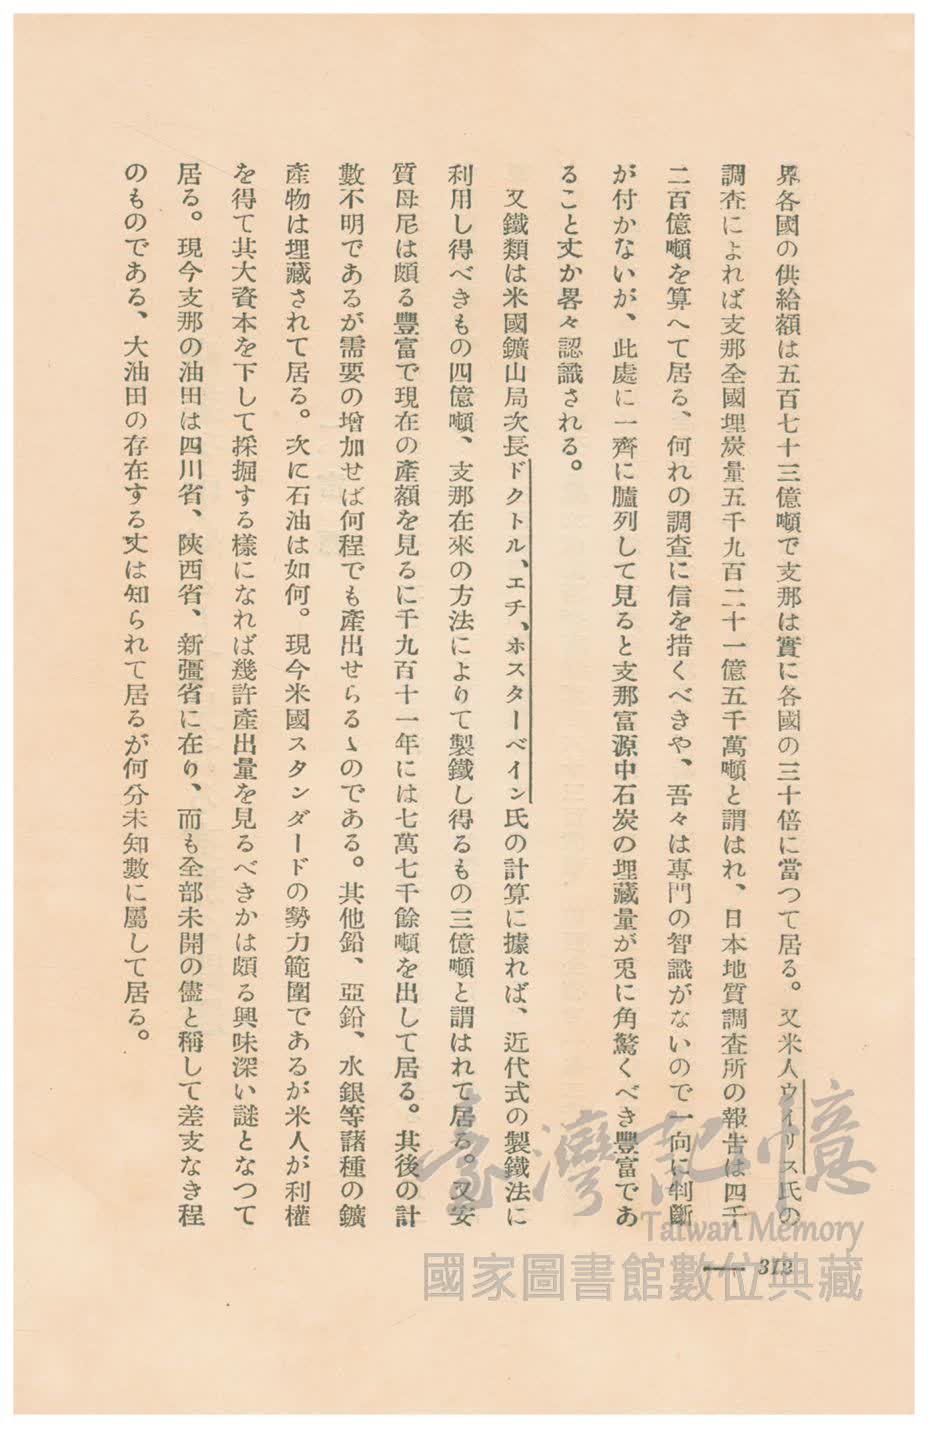 界各國の供給額は五百七十三億噸で支那は實に各國の三十倍に當つて居る。又米人ウイリス氏の
調査によれば支那全國埋炭量五千九百二十一億五千萬噸と謂はれ、日本地質調査所の報告は四千
二百億噸を算へて居る、何れの調査に信を措くべきや、吾々は專門の智識がないので一向に判斷
が付かないが、此處に一齊に臚列して見ると支那富源中石炭の埋藏量が兎に角驚くべき豐富であ
ること丈か畧々認識される。
又鐵類は米國鑛山局次長ドクトル、エチ、ホスターベイン氏の計算に據れば、近代式の製鐵法に
利用し得べきもの四億噸、支那在來の方法によりて製鐵し得るもの三億噸と謂はれて居る。又安
質母尼は頗る豐富で現在の產額を見るに千九百十一年には七萬七千餘噸を出して居る。其後の計
數不明であるが需要の增加せば何程でも產出せらるゝのである。其他鉛、亞鉛、水銀等諸種の鑛
產物は埋藏されて居る。次に石油は如何。現今米國スタンダードの勢力範圍であるが米人が利權
を得て其大資本を下して採掘する樣になれば幾許產出量を見るべきかは頗る興味深い謎となつて
居る。現今支那の油田は四川省、陝西省、新疆省に在り、而も全部未開の儘と稱して差支なき程
のものである、大油田の存在する丈は知られて居るが何分未知數に屬して居る。
312
臺灣記憶
Taiwan Memory
國家圖書館數位典藏